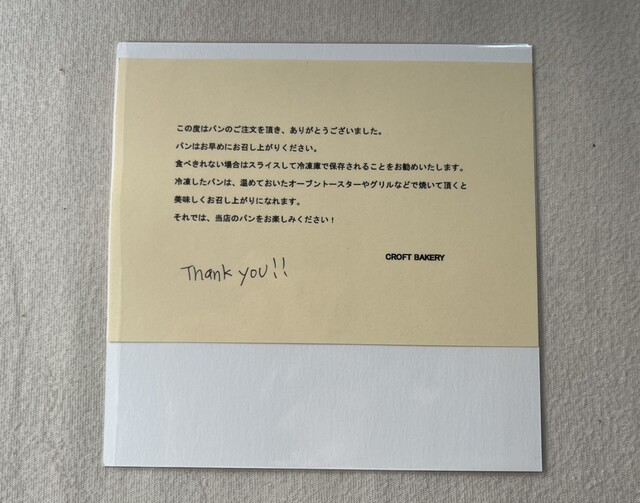 この度はパンのご注文を頂き、ありがとうございました。
パンはお早めにお召し上がりください。
食べきれない場合はスライスして冷凍庫で保存されることをお勧めいたします。
冷凍したパンは、温めておいたオーブントースターやグリルなどで焼いて頂くと
美味しくお召し上がりになれます。
それでは、当店のパンをお楽しみください！
CROFT BAKERY
Thank you!!